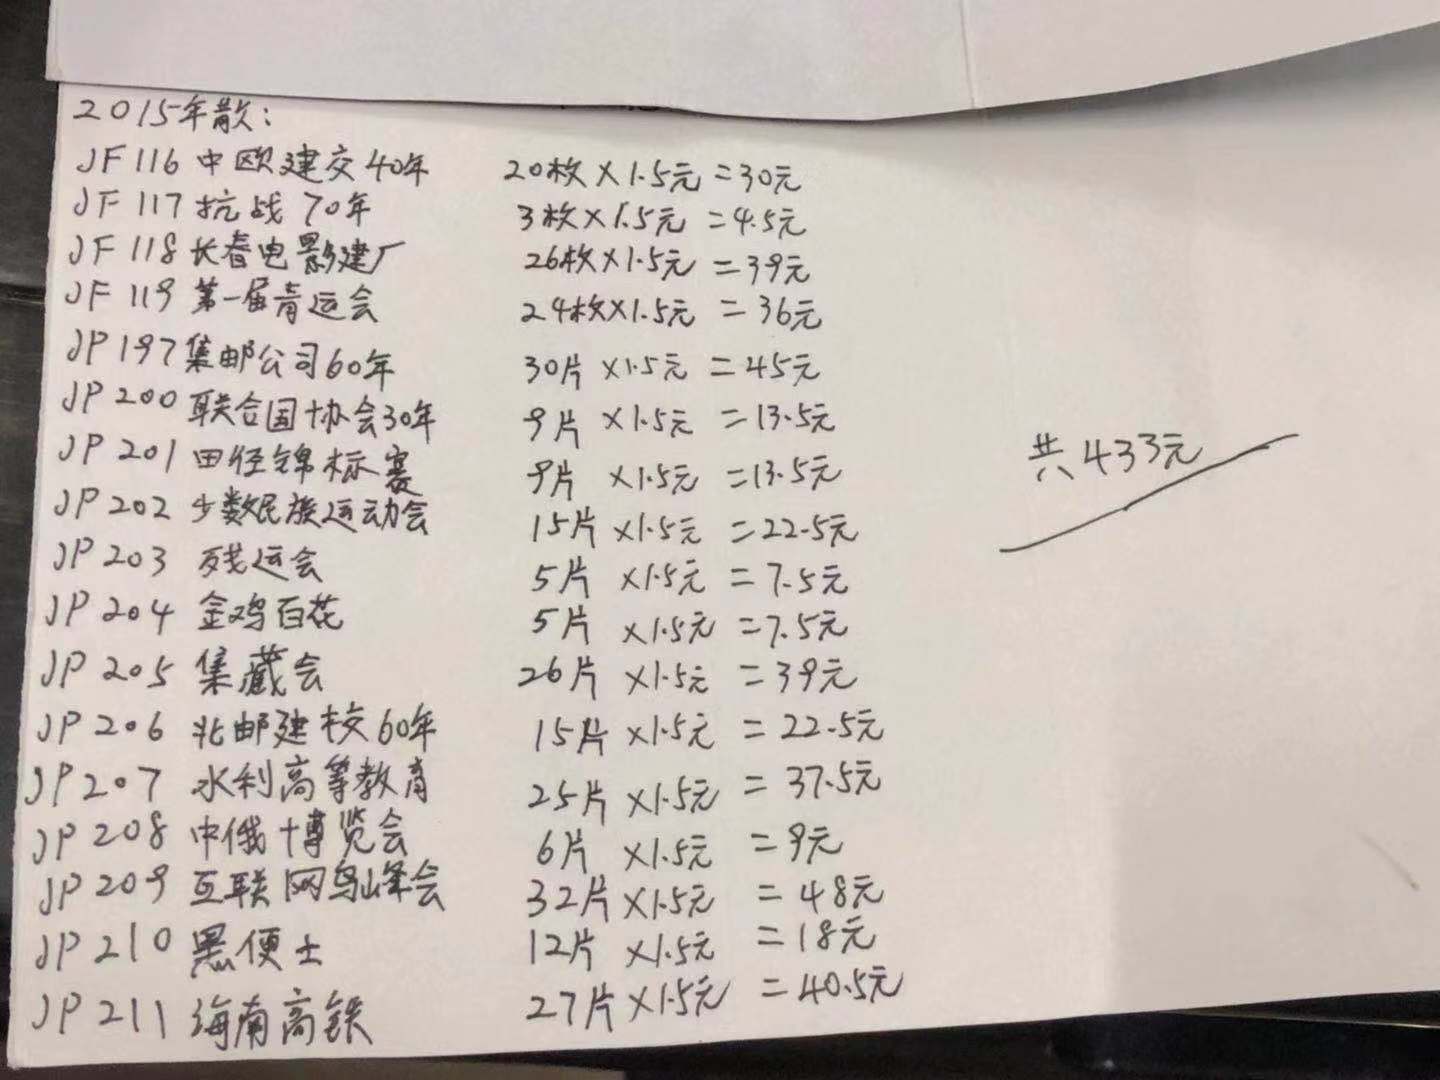 2015年散：
JF 116 中欧建交40年 20枚×1.5元=30元
JF 117 抗战70年 3枚×1.5元=4.5元
JF 118 长春电影建厂 26枚×1.5元=39元
JF 119 第一届青运会 24枚×1.5元=36元
JP197集邮公司60年 30片×1.5元=45元
JP200联合国协会30年 9片×1.5元=13.5元
JP201 田径锦标赛 9片×1.5元=13.5元
共433元
JP202 少数民族运动会 15片×1.5元=22.5元
JP203 残运会 5片×1.5元=7.5元
JP204 金鸡百花 5片×1.5元=7.5元
JP205 集藏会 26片×1.5元=39元
JP206 北邮建校60年 15片×1.5元=22.5元
JP207 水利高等教育 25片×1.5元=37.5元
JP208 中俄博览会 6片×1.5元=9元
JP209 互联网峰会 32片×1.5元=48元
JP210 黑便士 12片×1.5元=18元
JP211 海南高铁 27片×1.5元=40.5元